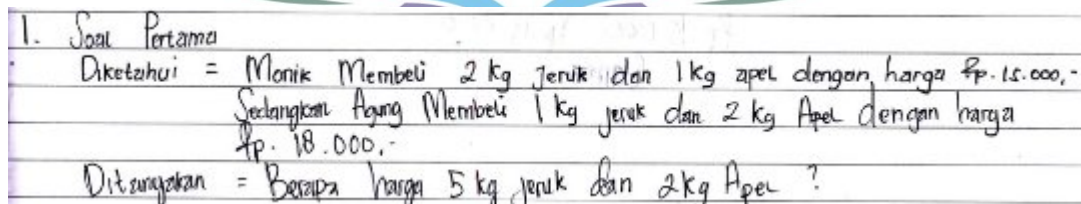 1. Soal Pertama
Diketahui = Monik Membeli 2 kg Jeruk dan 1 kg apel dengan harga Rp. 15.000,-
Sedangkan Agung Membeli 1 kg jeruk dan 2 kg Apel dengan harga
Rp. 18.000,-
Ditanyakan = Berapa harga 5 kg jeruk dan 2 kg Apel ?